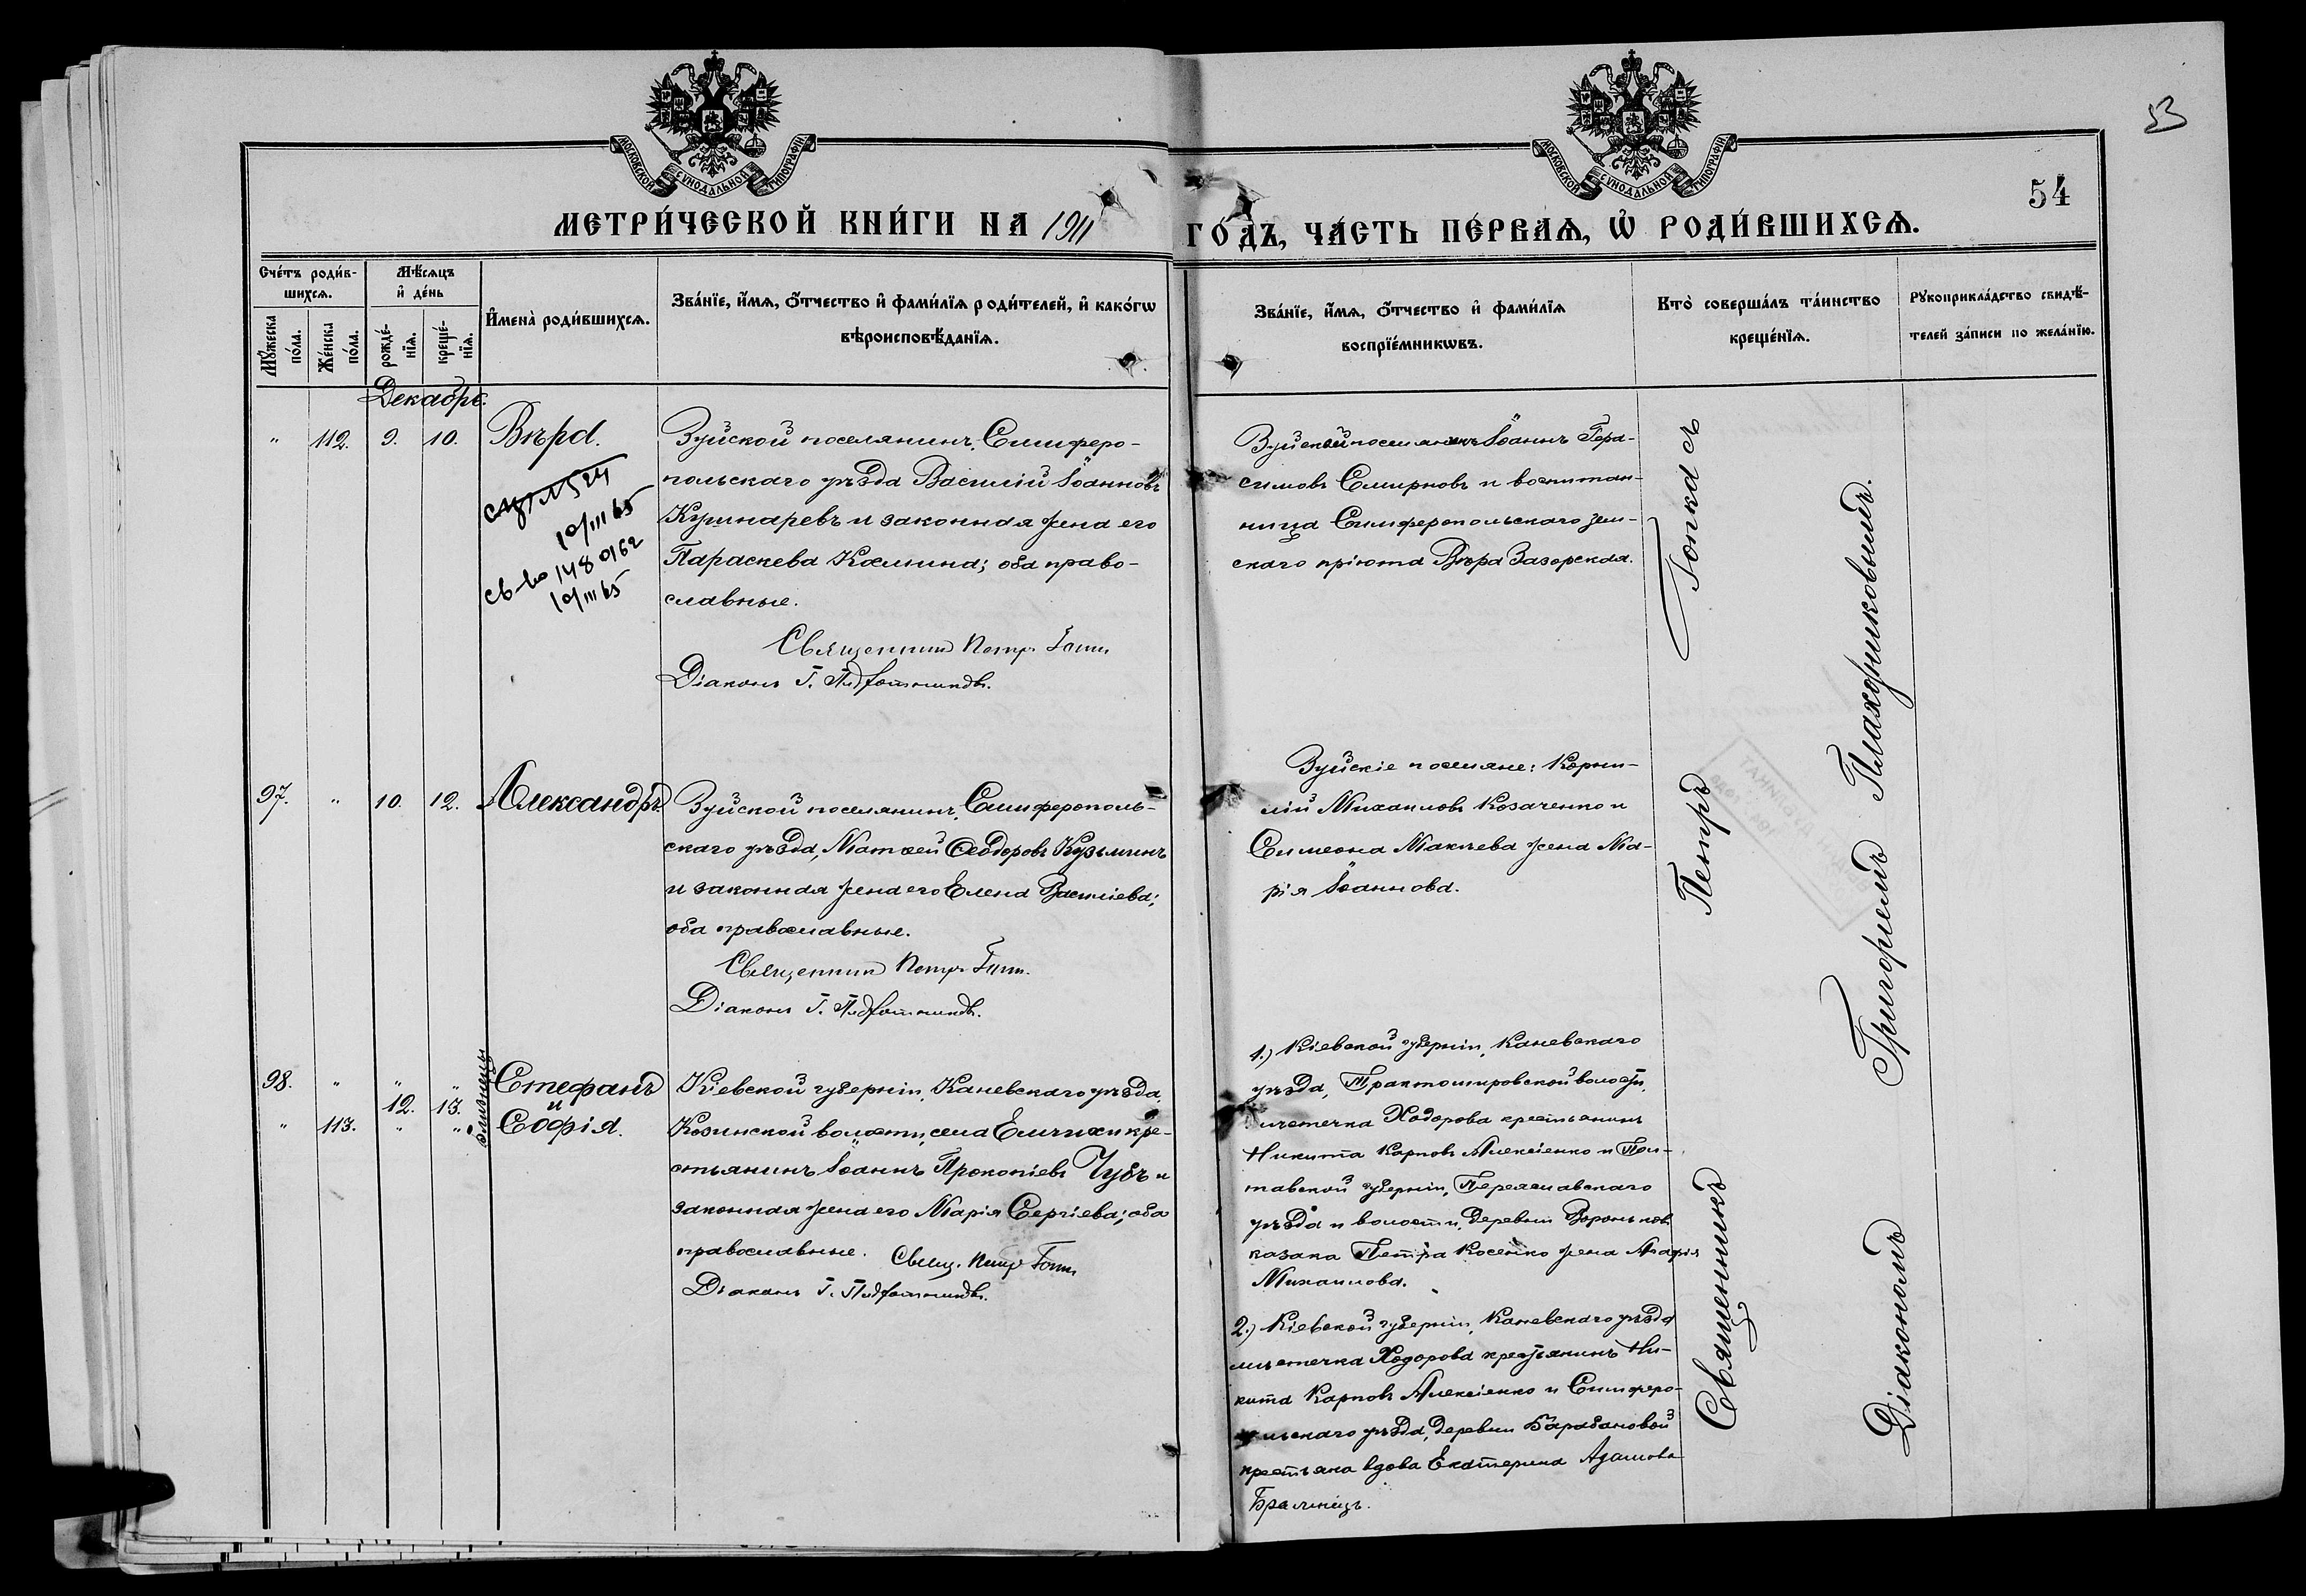 53
54
МОСКОВСКОЙ СѴНОДАЛЬНОЙ ТИПОГРАФІИ
МОСКОВСКОЙ СѴНОДАЛЬНОЙ ТИПОГРАФІИ
МЕТРИ́ЧЕСКОЙ КНИ́ГИ НА 1911
ГО́ДЪ, ЧА́СТЬ ПЕ́РВАѦ, Ѡ҆ РОДИ́ВШИХСѦ.
Сче́тъ роди́в-
шихсѧ.
Мѣ́сѧцъ
и҆ де́нь
Мꙋ́жеска
по́ла.
Же́нска
по́ла.
рожде́-
нїѧ.
креще́-
нїѧ.
И҆мена̀ роди́вшихсѧ.
Зва́нїе, и҆́мѧ, ѻ҆́тчество и҆ фами́лїѧ роди́телей, и҆ како́гѡ
вѣроисповѣ́данїѧ.
Зва́нїе, и҆́мѧ, ѻ҆́тчество и҆ фами́лїѧ
воспрїе́мникѡвъ.
Кто̀ соверша́лъ та́инство
креще́нїѧ.
Рꙋкоприкла́дство свидѣ́-
телей за́писи по жела́нїю.
Декабрь.
" 112. 9. 10. Вѣра.
10/III 65
св-во 148 0162
10/III 65
Зуйской поселянинъ, Симферо-
польскаго уѣзда Василій Іоанновъ
Кушнаревъ и законная жена его
Параскева Космина; оба право-
славные.
Священникъ Петръ
Діаконъ Г.
Зуйской поселянинъ Іоаннъ Гера-
симовъ Смирновъ и воспитан-
ница Симферопольскаго зем-
скаго пріюта Вѣра Загорская.
97. " 10. 12. Александръ.
Зуйской поселянинъ, Симферополь-
скаго уѣзда, Матѳей Ѳеодоровъ Кузьминъ
и законная жена его Елена Василіева;
оба православные.
Священникъ Петръ
Діаконъ Г.
Зуйскіе поселяне: Корни-
лій Михаиловъ Козаченко и
Симеона Макѣева жена Ма-
рія Іоаннова.
98. " " " Стефанъ
12. 13. и
" 113. " " София.
близнецы
Кіевской губерніи, Каневскаго уѣзда,
Козинской волости, села Емчихи кре-
стьянинъ Іоаннъ Прокопіевъ Чубъ и
законная жена его Марія Сергіева; оба
православные. Свящ. Петръ
Діаконъ Г.
1.) Кіевской губерніи, Каневскаго
уѣзда, Трактомировской волости,
мѣстечка Ходорова крестьянинъ
Никита Карповъ Алексіенко и Пол-
тавской губерніи, Переяславскаго
уѣзда и волости, деревни Вороньков
казака Петра Косенко жена Марія
Михаилова.
2.) Кіевской губерніи, Каневскаго уѣзда
мѣстечка Ходорова крестьянинъ Ни-
кита Карповъ Алексіенко и Симферо-
польскаго уѣзда, деревни Барабановой
крестьяна вдова Екатерина Адамова
Священникъ Петръ
Діакономъ Григоріемъ